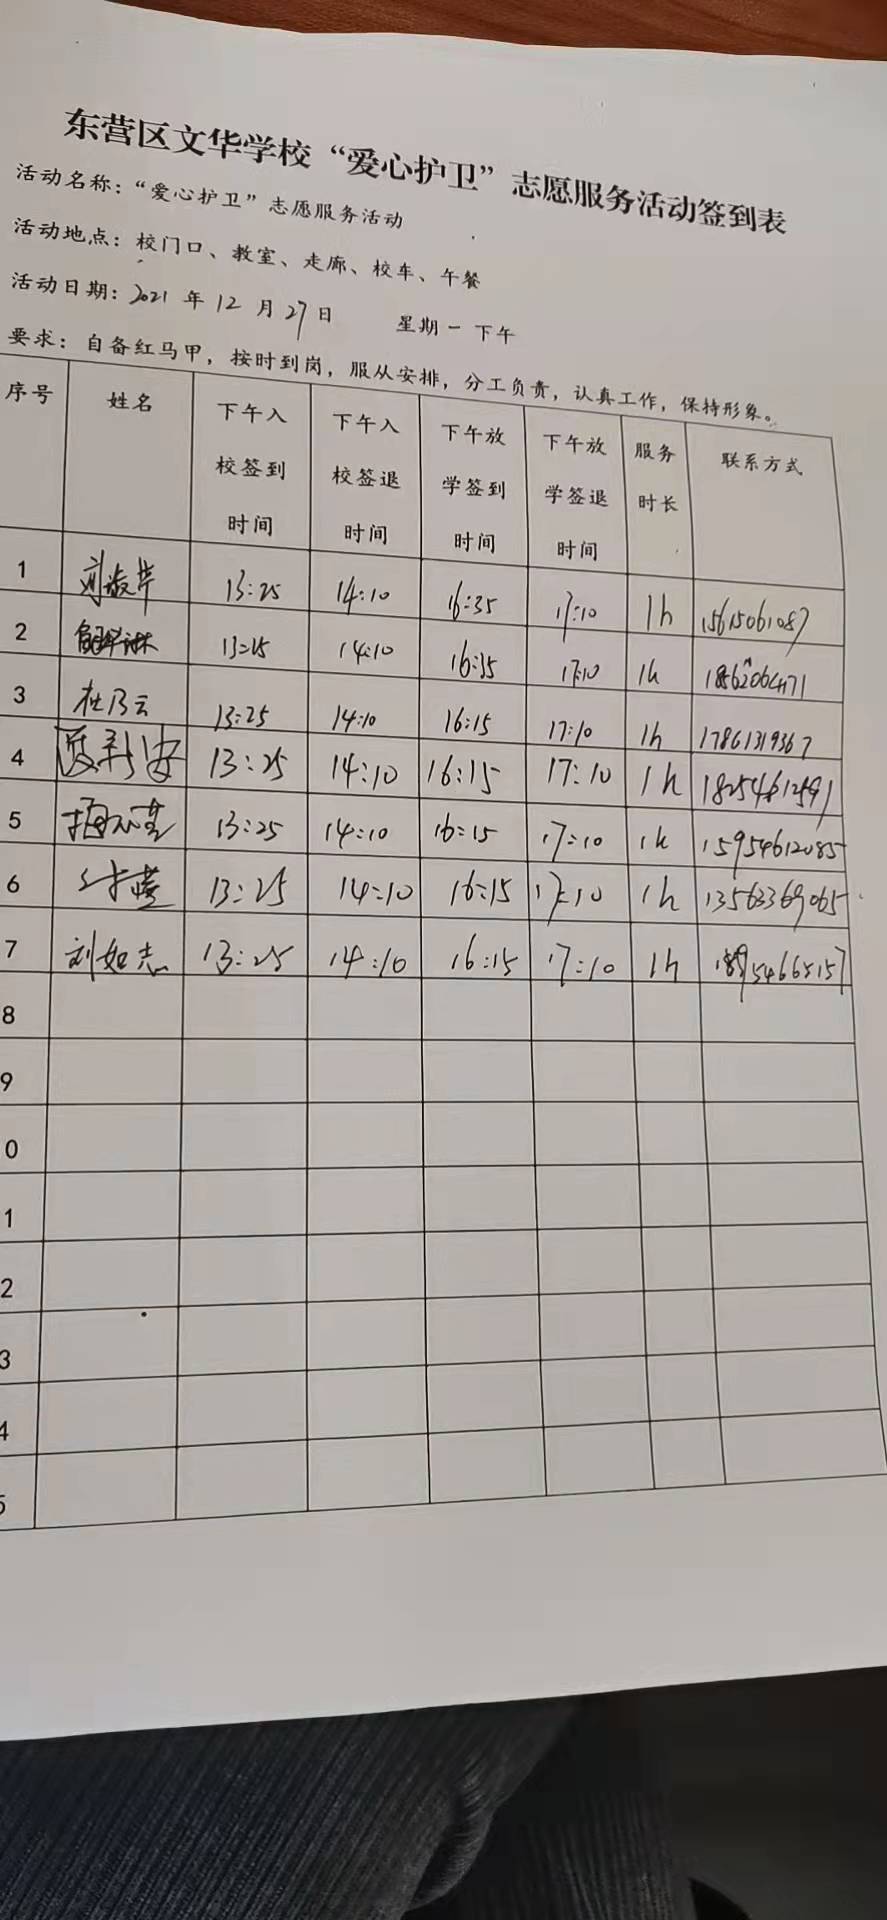 东营区文华学校“爱心护卫”志愿服务活动签到表
活动名称：“爱心护卫”志愿服务活动
活动地点：校门口、教室、走廊、校车、午餐
活动日期：2021 年 12 月 27 日 星期一 下午
要求：自备红马甲，按时到岗，服从安排，分工负责，认真工作，保持形象。
序号 姓名 下午入校签到时间 下午入校签退时间 下午放学签到时间 下午放学签退时间 服务时长 联系方式
1 13:25 14:10 16:35 17:10 1h 15615061087
2 13:25 14:10 16:35 17:10 1h
3 杜乃云 13:25 14:10 16:15 17:10 1h 17861319367
4 13:25 14:10 16:15 17:10 1h
5 13:25 14:10 16:15 17:10 1h 15954612085
6 13:25 14:10 16:15 17:10 1h 13563369065
7 刘如志 13:25 14:10 16:15 17:10 1h
8
9
0
1
2
3
4
5